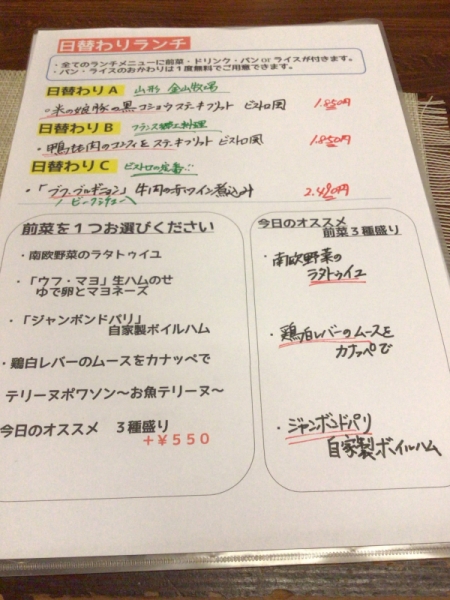 日替わりランチ
・全てのランチメニューに前菜・ドリンク・パンorライスが付きます。
・パン・ライスのおかわりは１度無料でご用意できます。
日替わりA 山形 金山牧場
・米の娘豚の黒コショウステーキフリット ビストロ風 1.850円
日替わりB フランス郷土料理
・鴨もも肉のコンフィ＆ステーキフリット ビストロ風 1.850円
日替わりC ビストロの定番
・「ブフ・ブルギニョン」牛肉の赤ワイン煮込み 2.480円
ビーフシチュー
前菜を１つお選びください
・南欧野菜のラタトゥイユ
・「ウフ・マヨ」生ハムのせ
ゆで卵とマヨネーズ
・「ジャンボンドパリ」
自家製ボイルハム
・鶏白レバーのムースをカナッペで
テリーヌポワソン～お魚テリーヌ～
今日のオススメ ３種盛り
＋￥５５０
今日のオススメ
前菜３種盛り
・南欧野菜の
ラタトゥイユ
・鶏白レバーのムースを
カナッペで
・ジャンボンドパリ
自家製ボイルハム